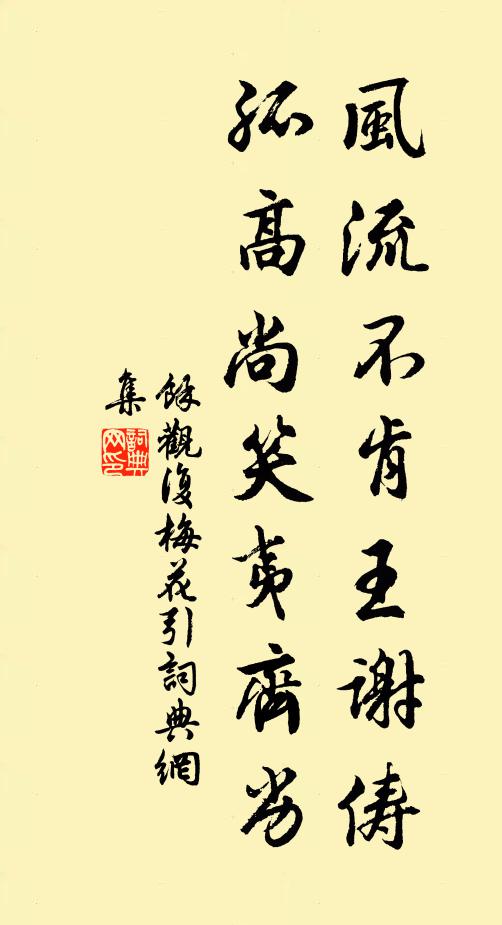 風流不肯王謝儔
孤高尚笑夷齊劣
餘觀復梅花引詞典網
集
詞典
网印